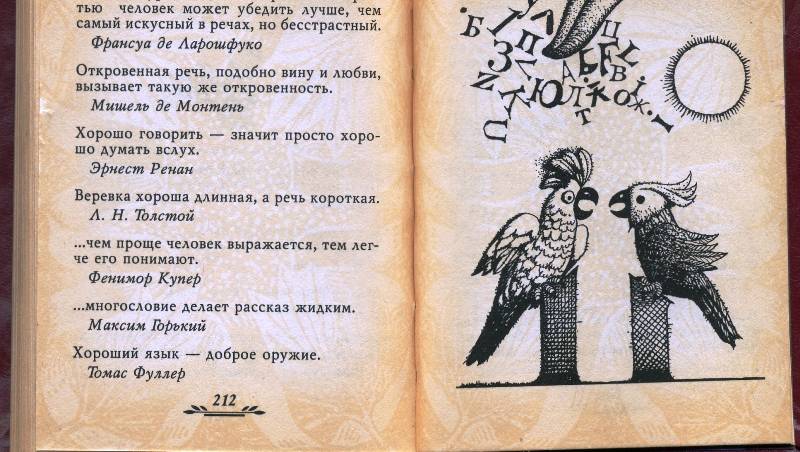 тью человек может убедить лучше, чем
самый искусный в речах, но бесстрастный.
Франсуа де Ларошфуко
Откровенная речь, подобно вину и любви,
вызывает такую же откровенность.
Мишель де Монтень
Хорошо говорить — значит просто хоро-
шо думать вслух.
Эрнест Ренан
Веревка хороша длинная, а речь короткая.
Л. Н. Толстой
...чем проще человек выражается, тем лег-
че его понимают.
Фенимор Купер
...многословие делает рассказ жидким.
Максим Горький
Хороший язык — доброе оружие.
Томас Фуллер
212